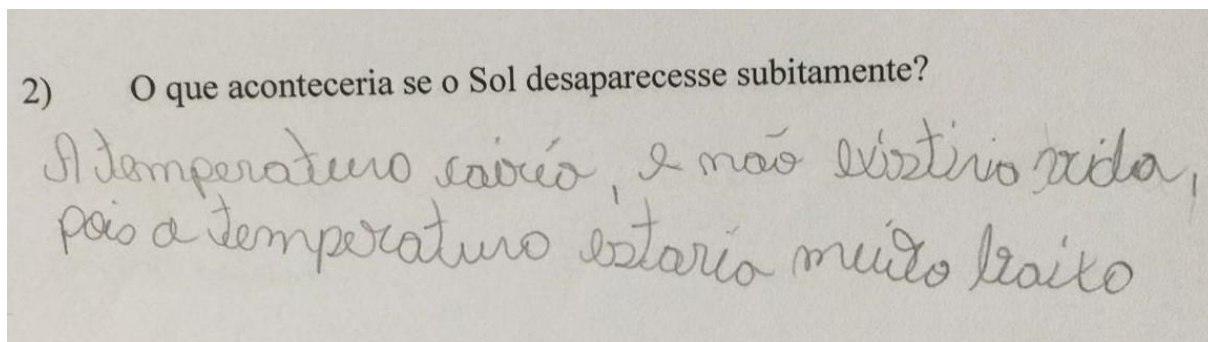 2) O que aconteceria se o Sol desaparecesse subitamente?
A temperatura cairía, e não existiria vida,
pois a temperatura estaria muito baixo